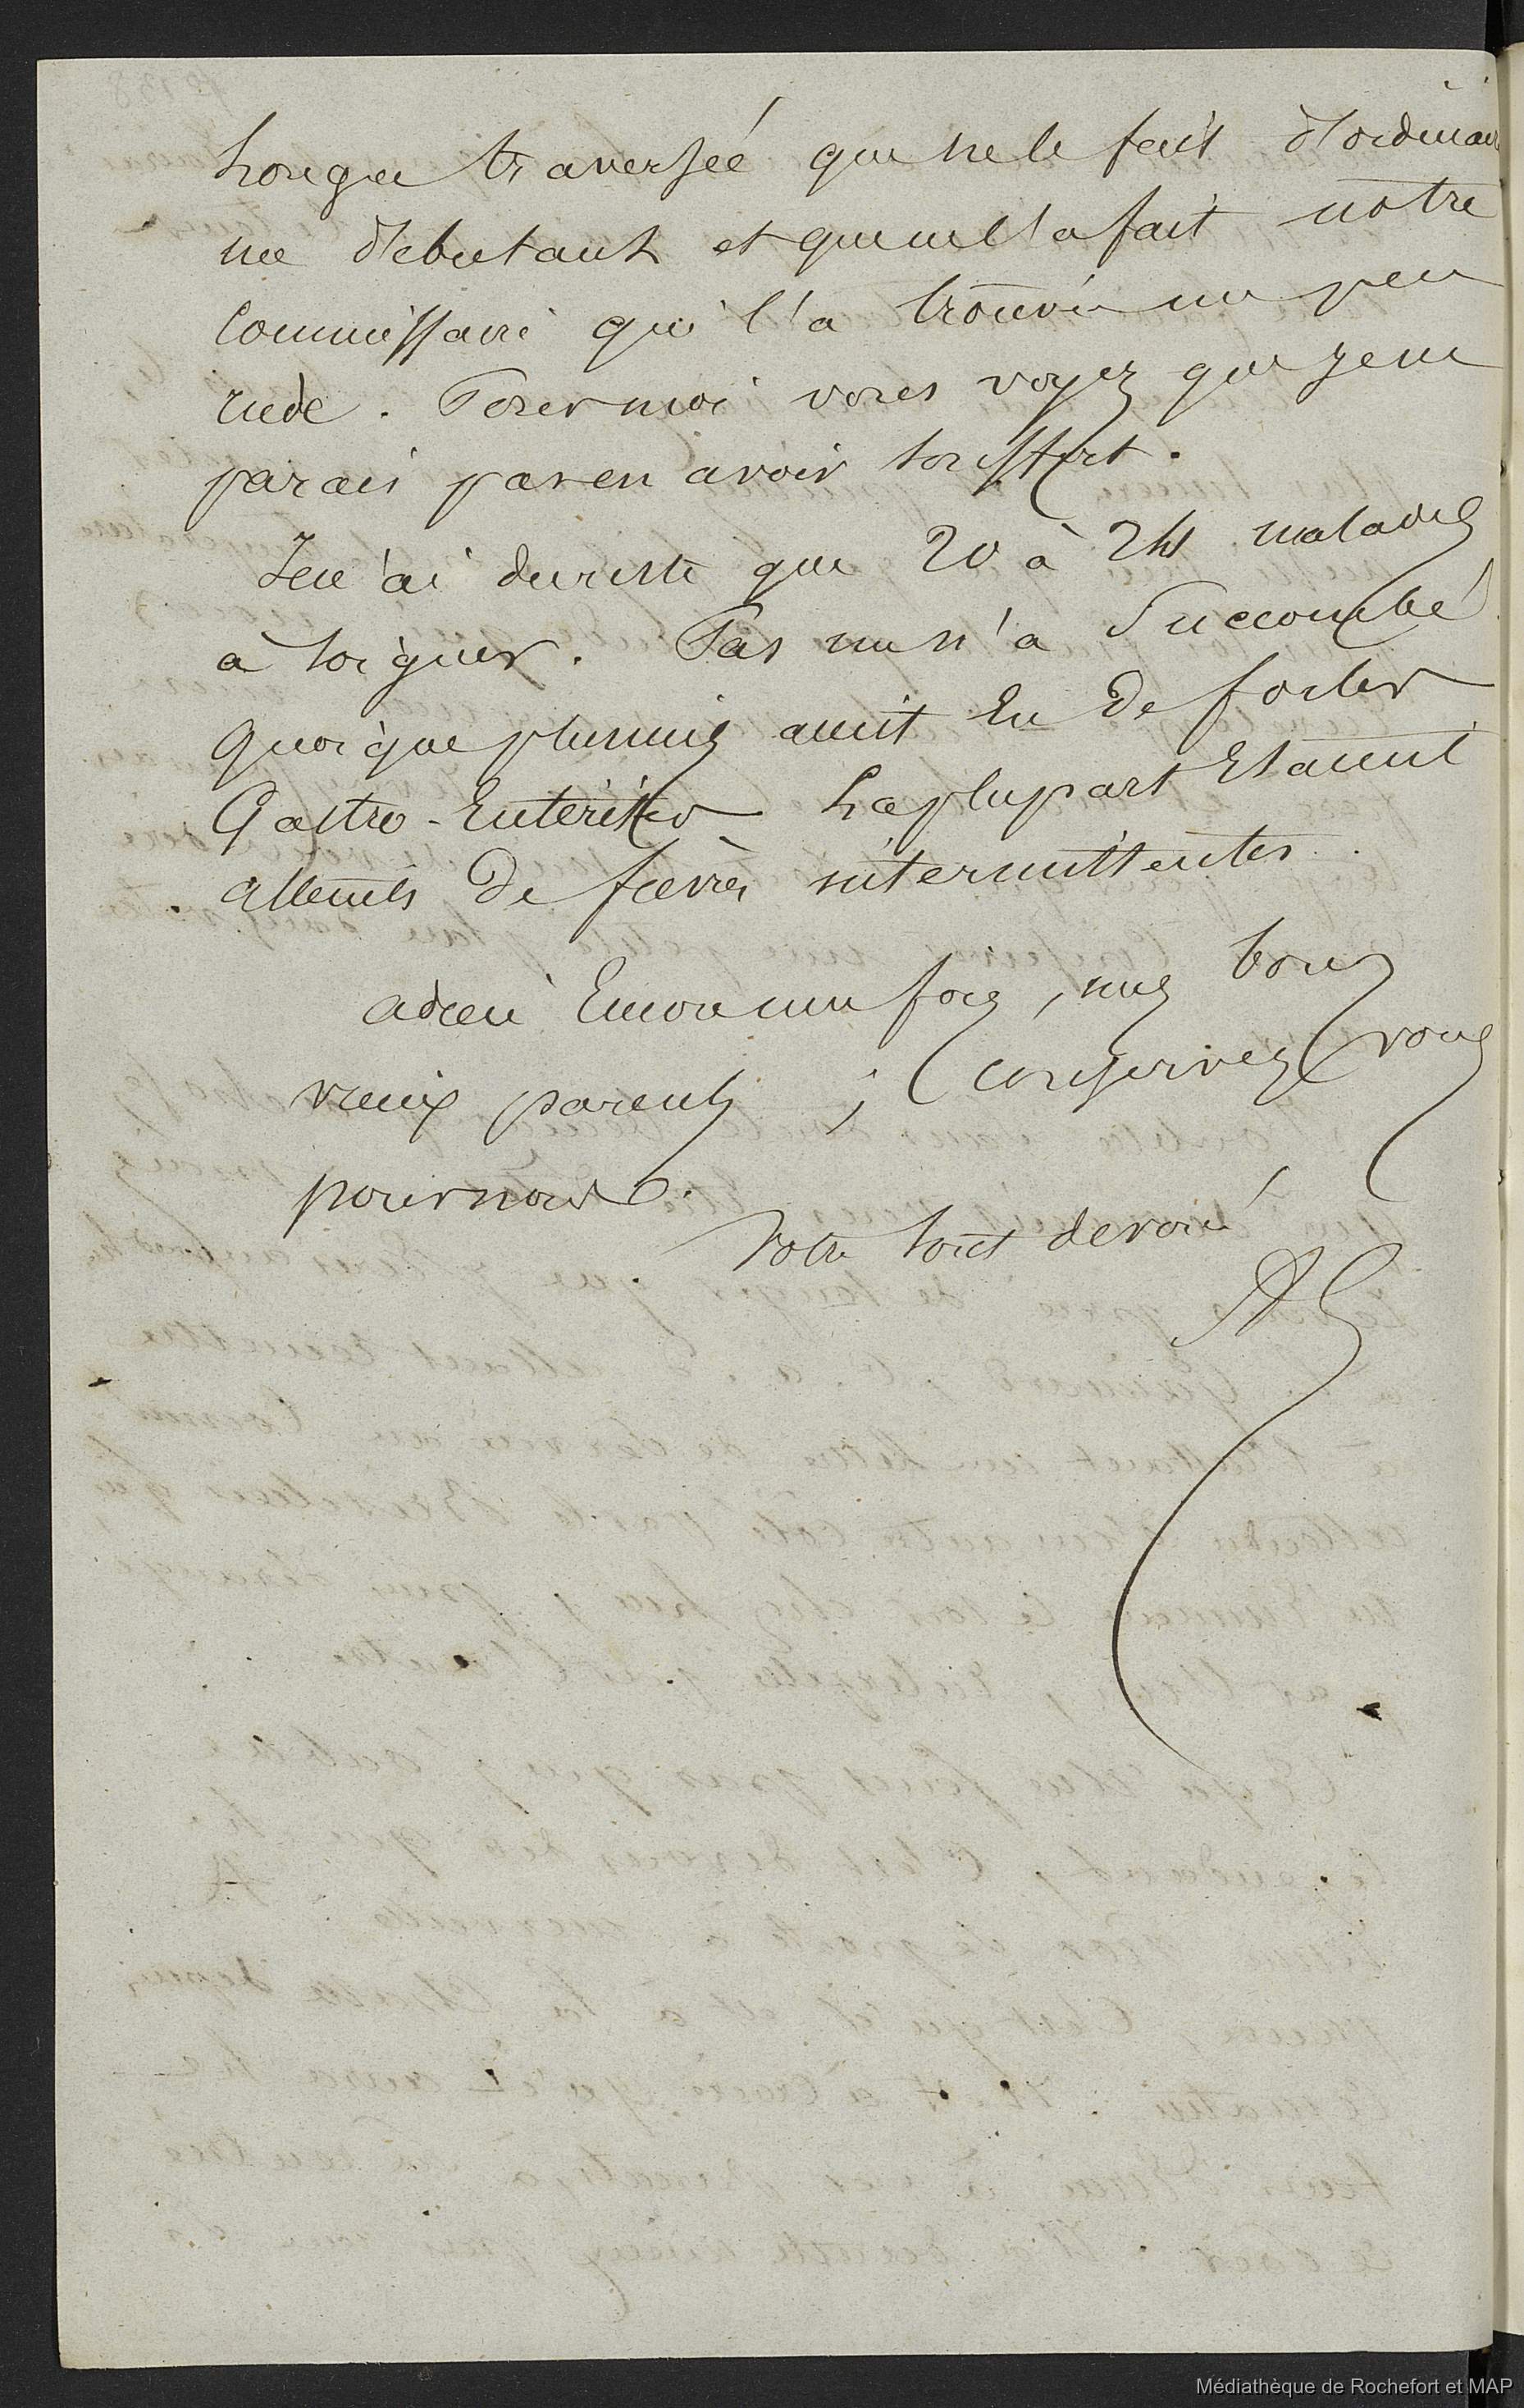 longue traversée que ne le fait d'ordinaire
un débutant et que ne l'a fait notre
Commissaire qui l'a trouvée un peu
rude. Pour moi vous voyez que je ne
parais pas en avoir souffert.
Je n'ai du reste que 20 à 24 malades
à soigner. Pas un n'a succombé
quoique plusieurs aient eu de fortes
Gastro-Entérites La plupart Etaient
atteints de fièvres intermittentes.
adieu Encore une fois, mes bons
vieux parents ; conservez vous
pour nous.
Votre tout dévoué
Médiathèque de Rochefort et MAP